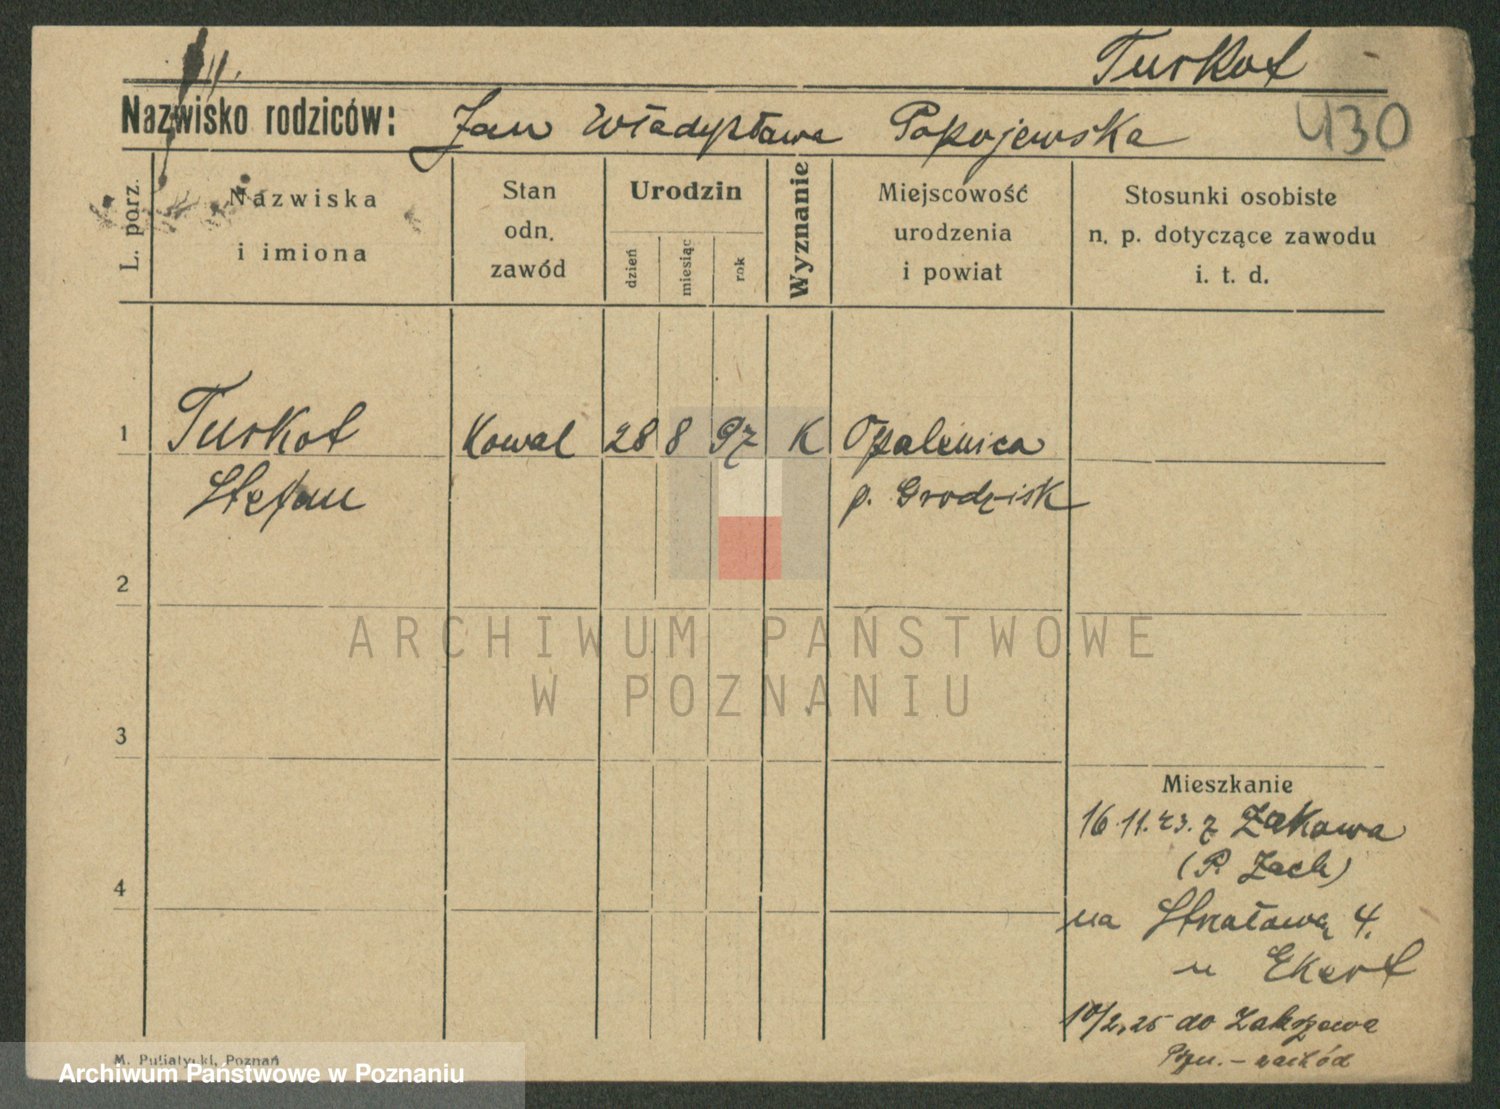 Turkot
Nazwisko rodziców: Jan Władysława Pokojewska
430
L. porz.
Nazwiska
i imiona
Stan
odn.
zawód
Urodzin
dzień
miesiąc
rok
Wyznanie
Miejscowość
urodzenia
i powiat
Stosunki osobiste
n. p. dotyczące zawodu
i. t. d.
1 Turkot Kowal 28 8 97 K Opalenica
Stefan p. Grodzisk
2
ARCHIWUM PAŃSTWOWE
W POZNANIU
3
Mieszkanie
16.11.23. z Żakowa
(P. Zach)
4
na Strzałową 4.
u Ekert
10/2.25 do Zakrzewa
Pozn. - zachód
M. Putiatycki, Poznań
Archiwum Państwowe w Poznaniu